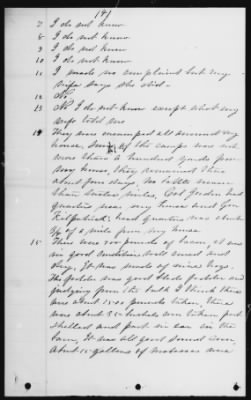 (4)
7 I do not know
8 I do not know
9 I do not know
10 I do not know
11 I made no complaint but my
wife says she did.
12 No
13 No I do not know except what my
wife told me
14 They were encamped all around my
house, Some of the camps was not
more than a hundred yards from
my house, they remained there
about four days. No battle nearer
than miles. Genl
quarters near my house and Gen
Kilpatrick head quarters was about
¾ of a mile from my house
15 There were 200 pounds of bacon, it was
in good condition well cured and
dry, It was made of nine hogs.
The fodder was good blade fodder and
judging from the bulk I think there
was about 1500 pounds taken, there
were about 35 bushels corn taken, part
shelled and part in ear in the
barn, It was all good sound corn,
About 15 gallons of molasses were